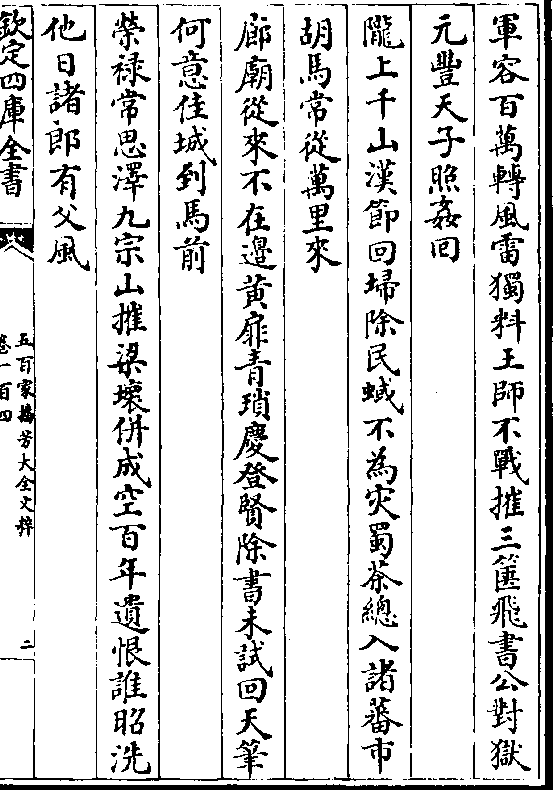 軍容百萬轉風雷獨料王師不戰摧三篋飛書公對獄
元豐天子照姦回
隴上千山漢節回埽除民蜮不為灾蜀茶總入諸蕃市
胡馬常從萬里來
廊廟從來不在邉黄扉青瑣慶登賢除書未試回天筆
何意佳城到馬前
榮禄常思澤九宗山摧梁壊併成空百年遺恨誰昭洗
他日諸郎有父風
欽定四庫全書
五百家播芳大全文粹
卷一百四
二